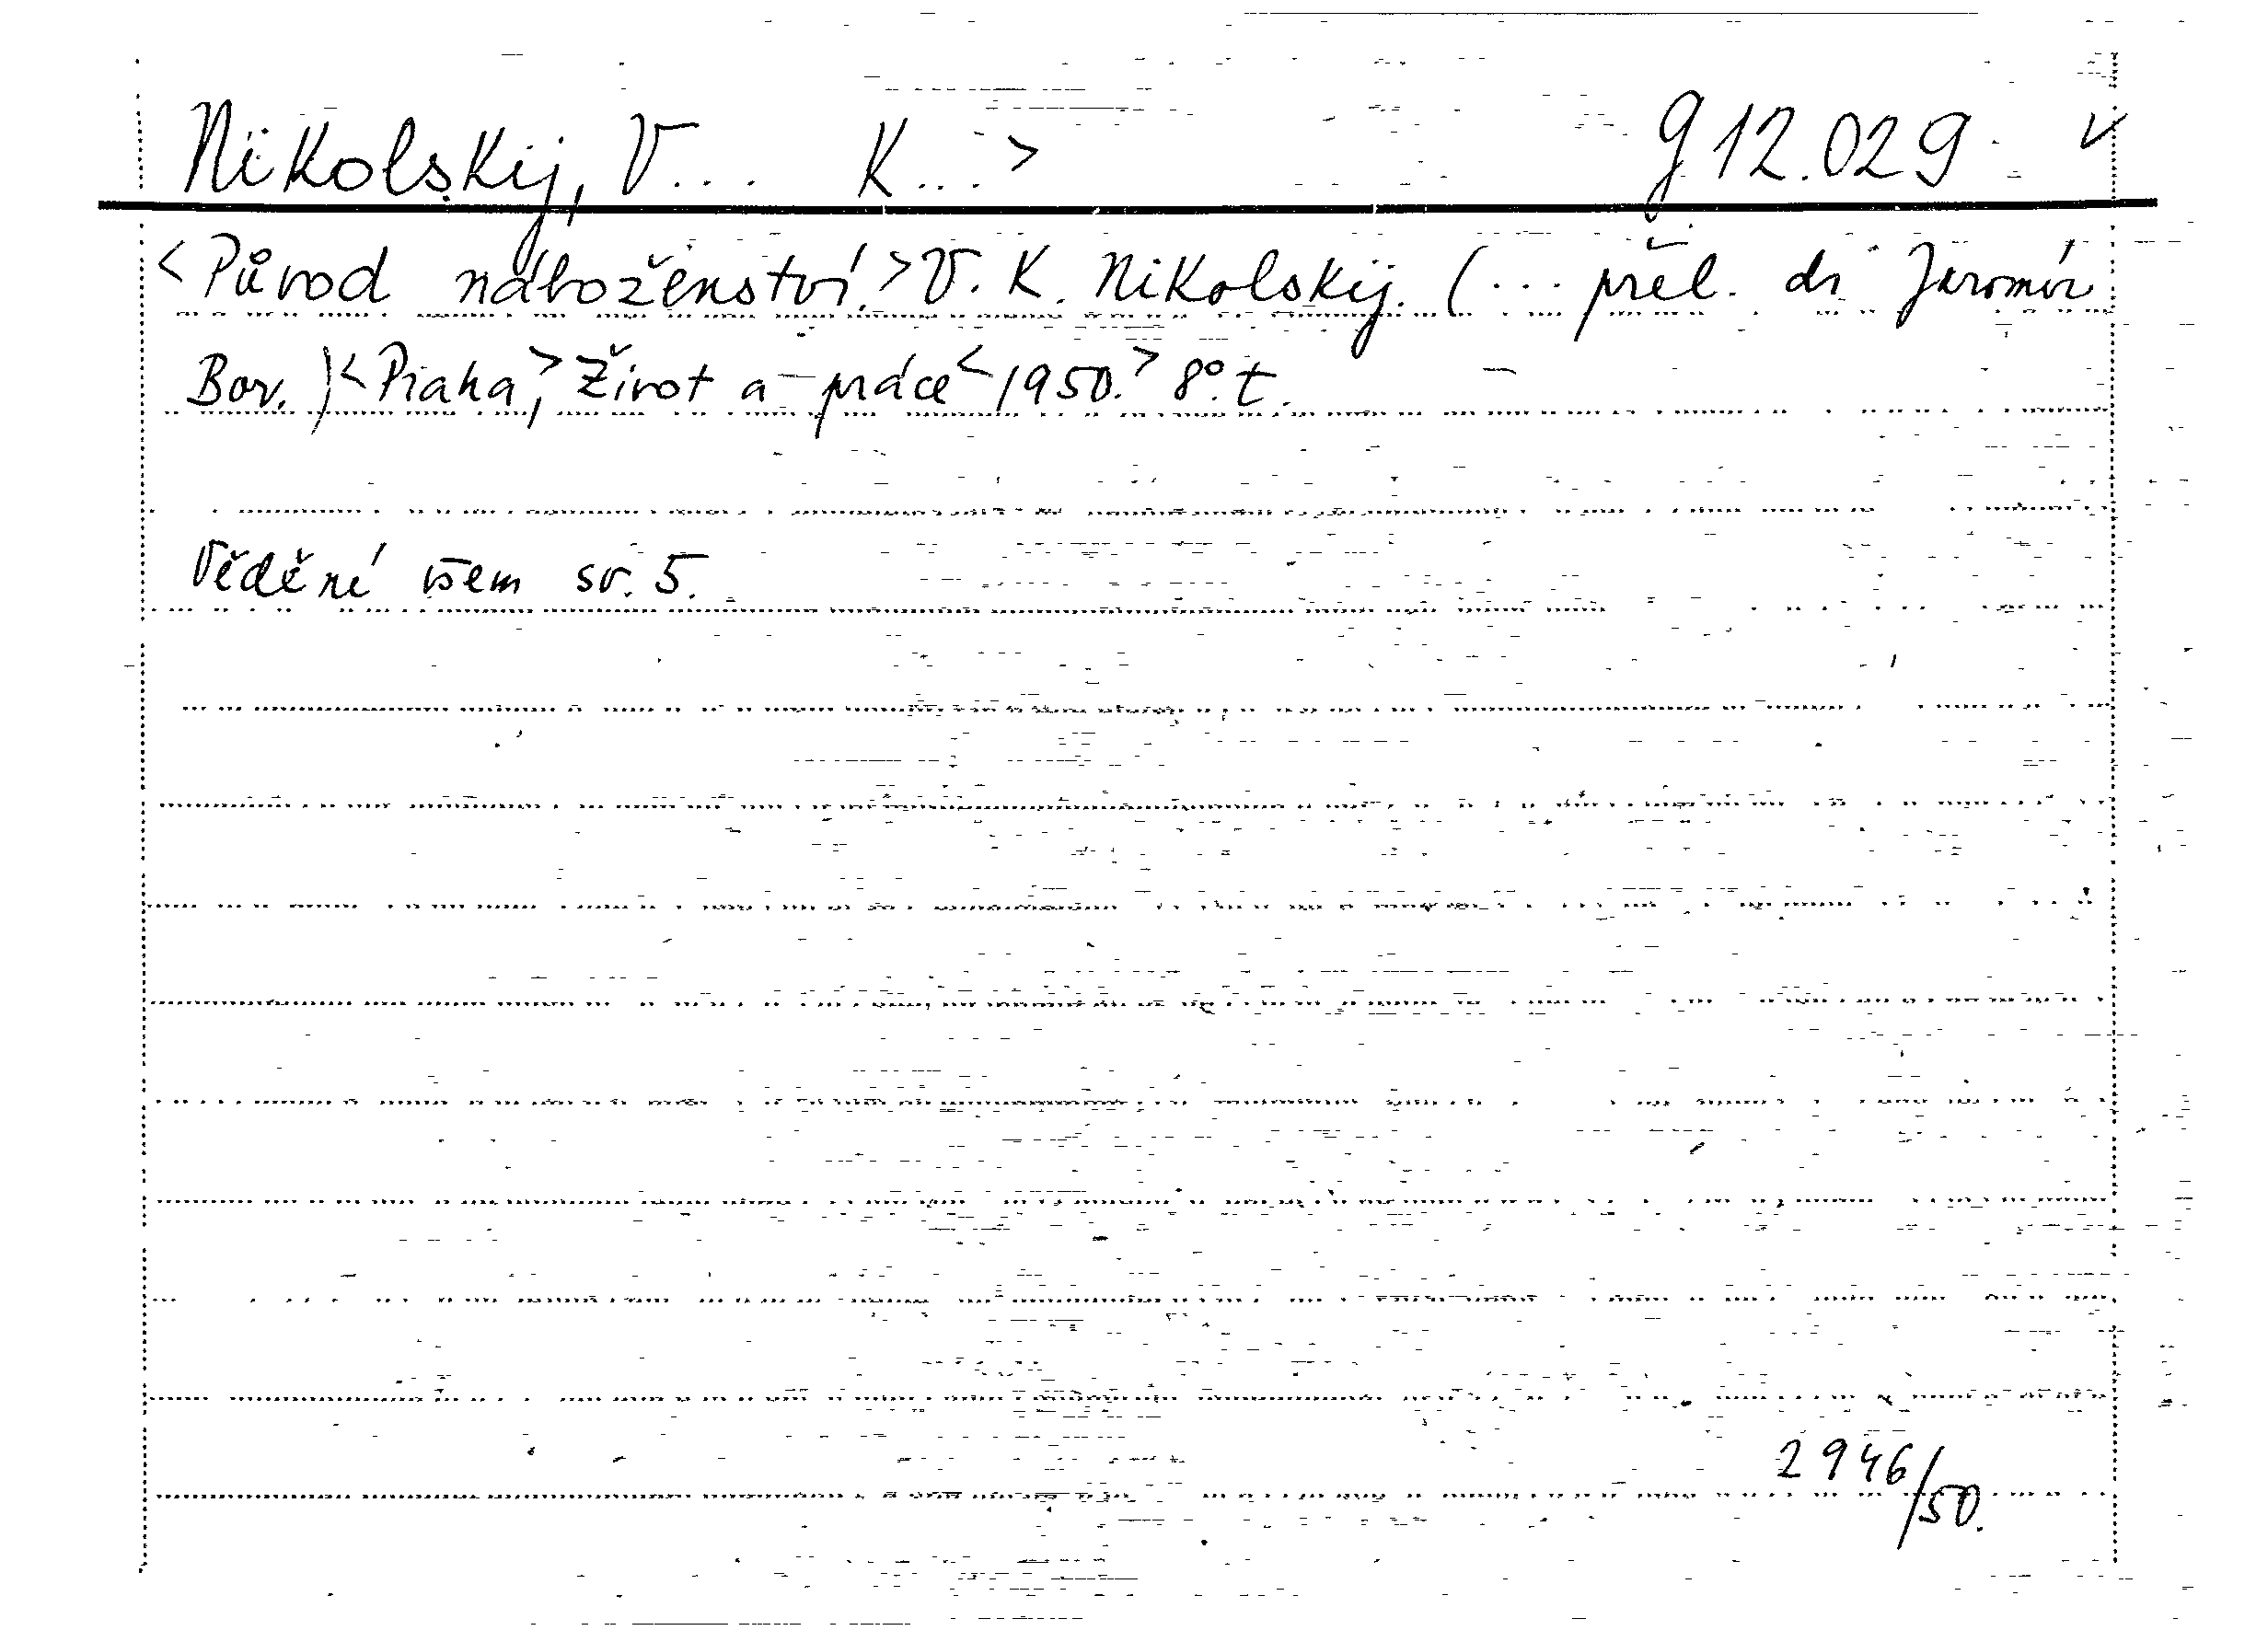 Nikolskij, V... K...> g 12.029 v
<Původ náboženství.> V. K. Nikolskij. (... přel. dr Jaromír
Bor.) <Praha,> Život a práce <1950.> 8°. t.
Vědění všem sv. 5.
2946/50.